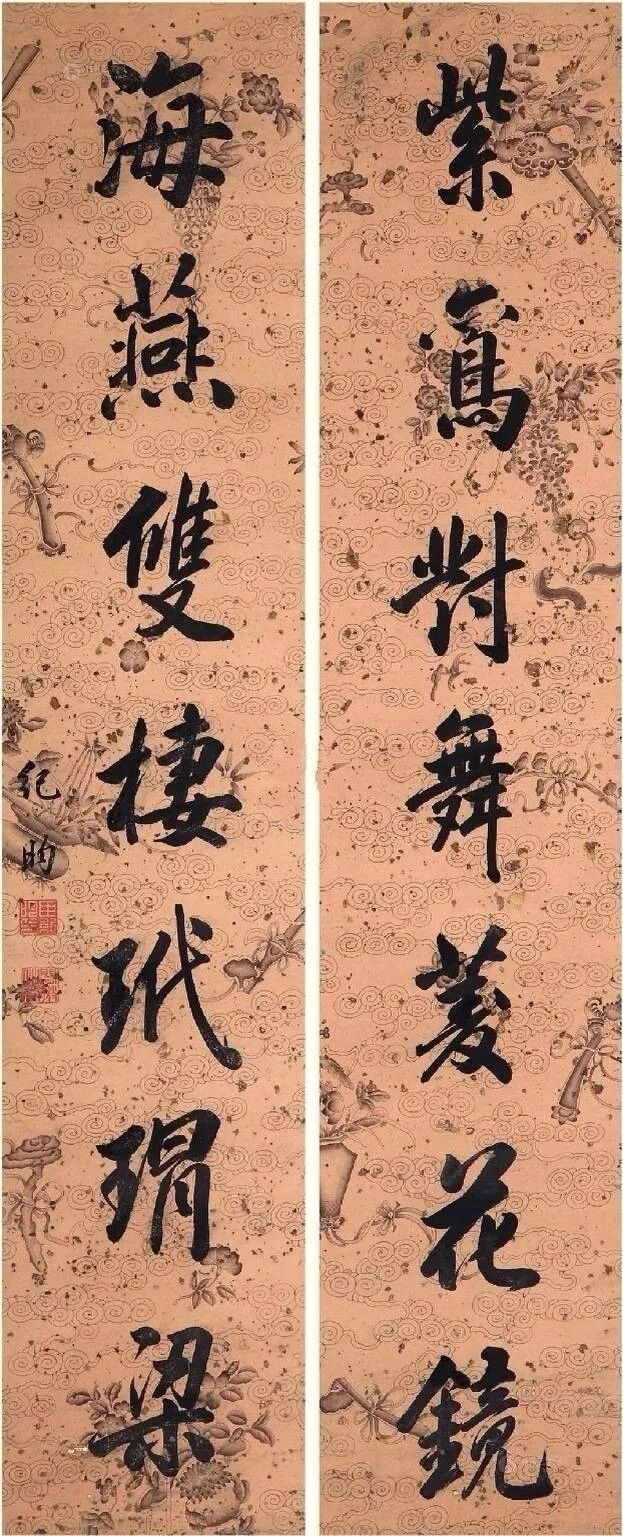 紫鸞對舞菱花鏡
海燕雙棲玳瑁梁
紀昀